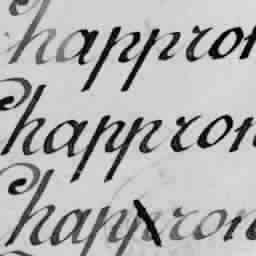 Chappron
Chappron
Chappron